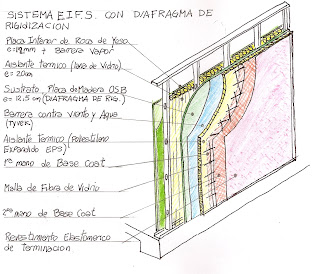 SISTEMA E.I.F.S. CON DIAFRAGMA DE
RIGIDIZACION
Placa Interior de Roca de Yeso
e=12mm + Barrera Vapor
Aislante termico (lana de Vidrio)
e=20cm
Sustrato Placa de Madera OSB
e=12,5cm (DIAFRAGMA DE RIG.)
Barrera contra Viento y Agua
(TYVEK)
Aislante Termico (Poliestileno
Expandido EPS)
1ra mano de Base Coat
Malla de Fibra de Vidrio
2da mano de Base Coat
Revestimiento Elastomerico
de terminacion